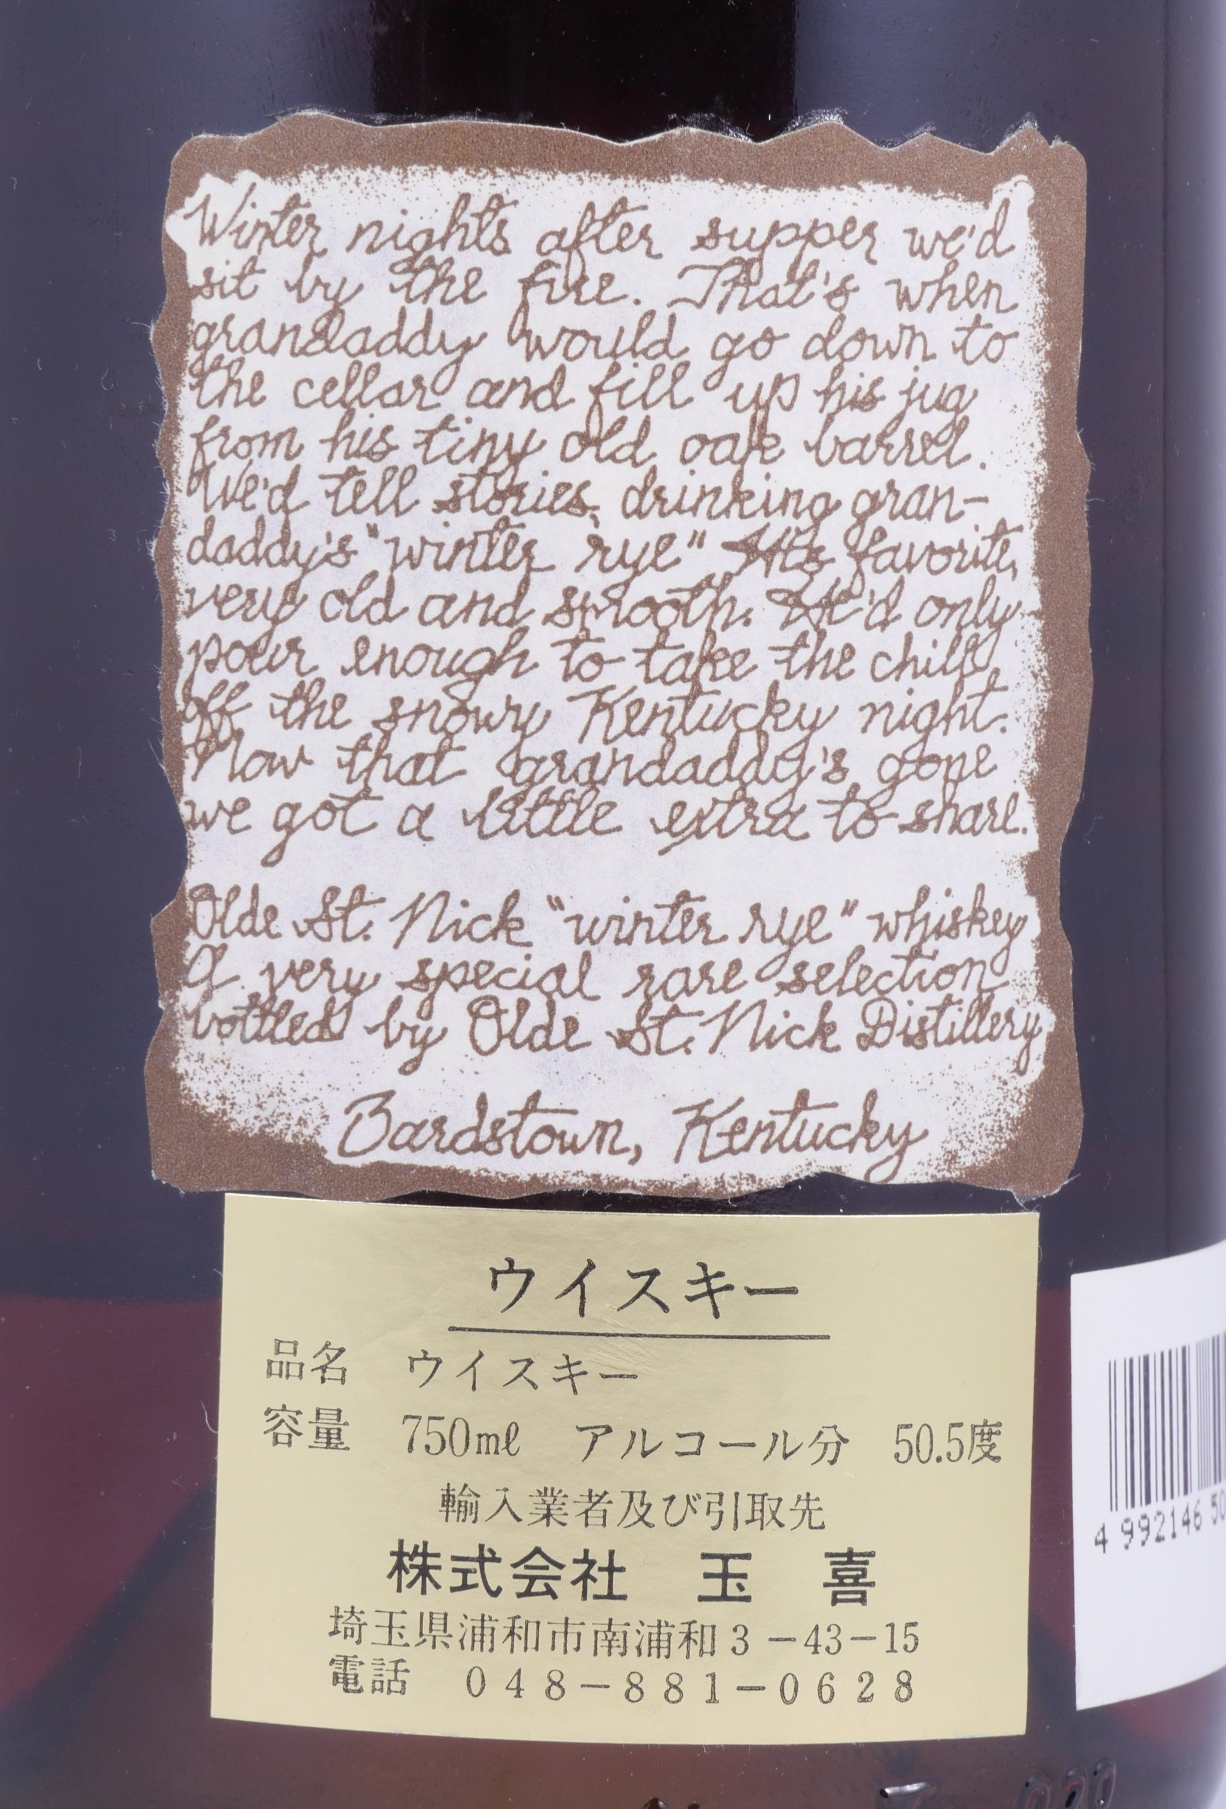 Winter nights after supper we'd
sit by the fire. That's when
grandaddy would go down to
the cellar and fill up his jug
from his tiny old oak barrel.
We'd tell stories, drinking gran-
daddy's "winter rye" His favorite,
very old and smooth. He'd only
pour enough to take the chill
off the snowy Kentucky night.
Now that grandaddy's gone
we got a little extra to share.
Olde St. Nick "winter rye" whiskey
A very special rare selection
bottled by Olde St. Nick Distillery
Bardstown, Kentucky
ウイスキー
品名 ウイスキー
容量 750mℓ アルコール分 50.5度
輸入業者及び引取先
株式会社 玉喜
埼玉県浦和市南浦和3-43-15
電話 048-881-0628
4 992146 50